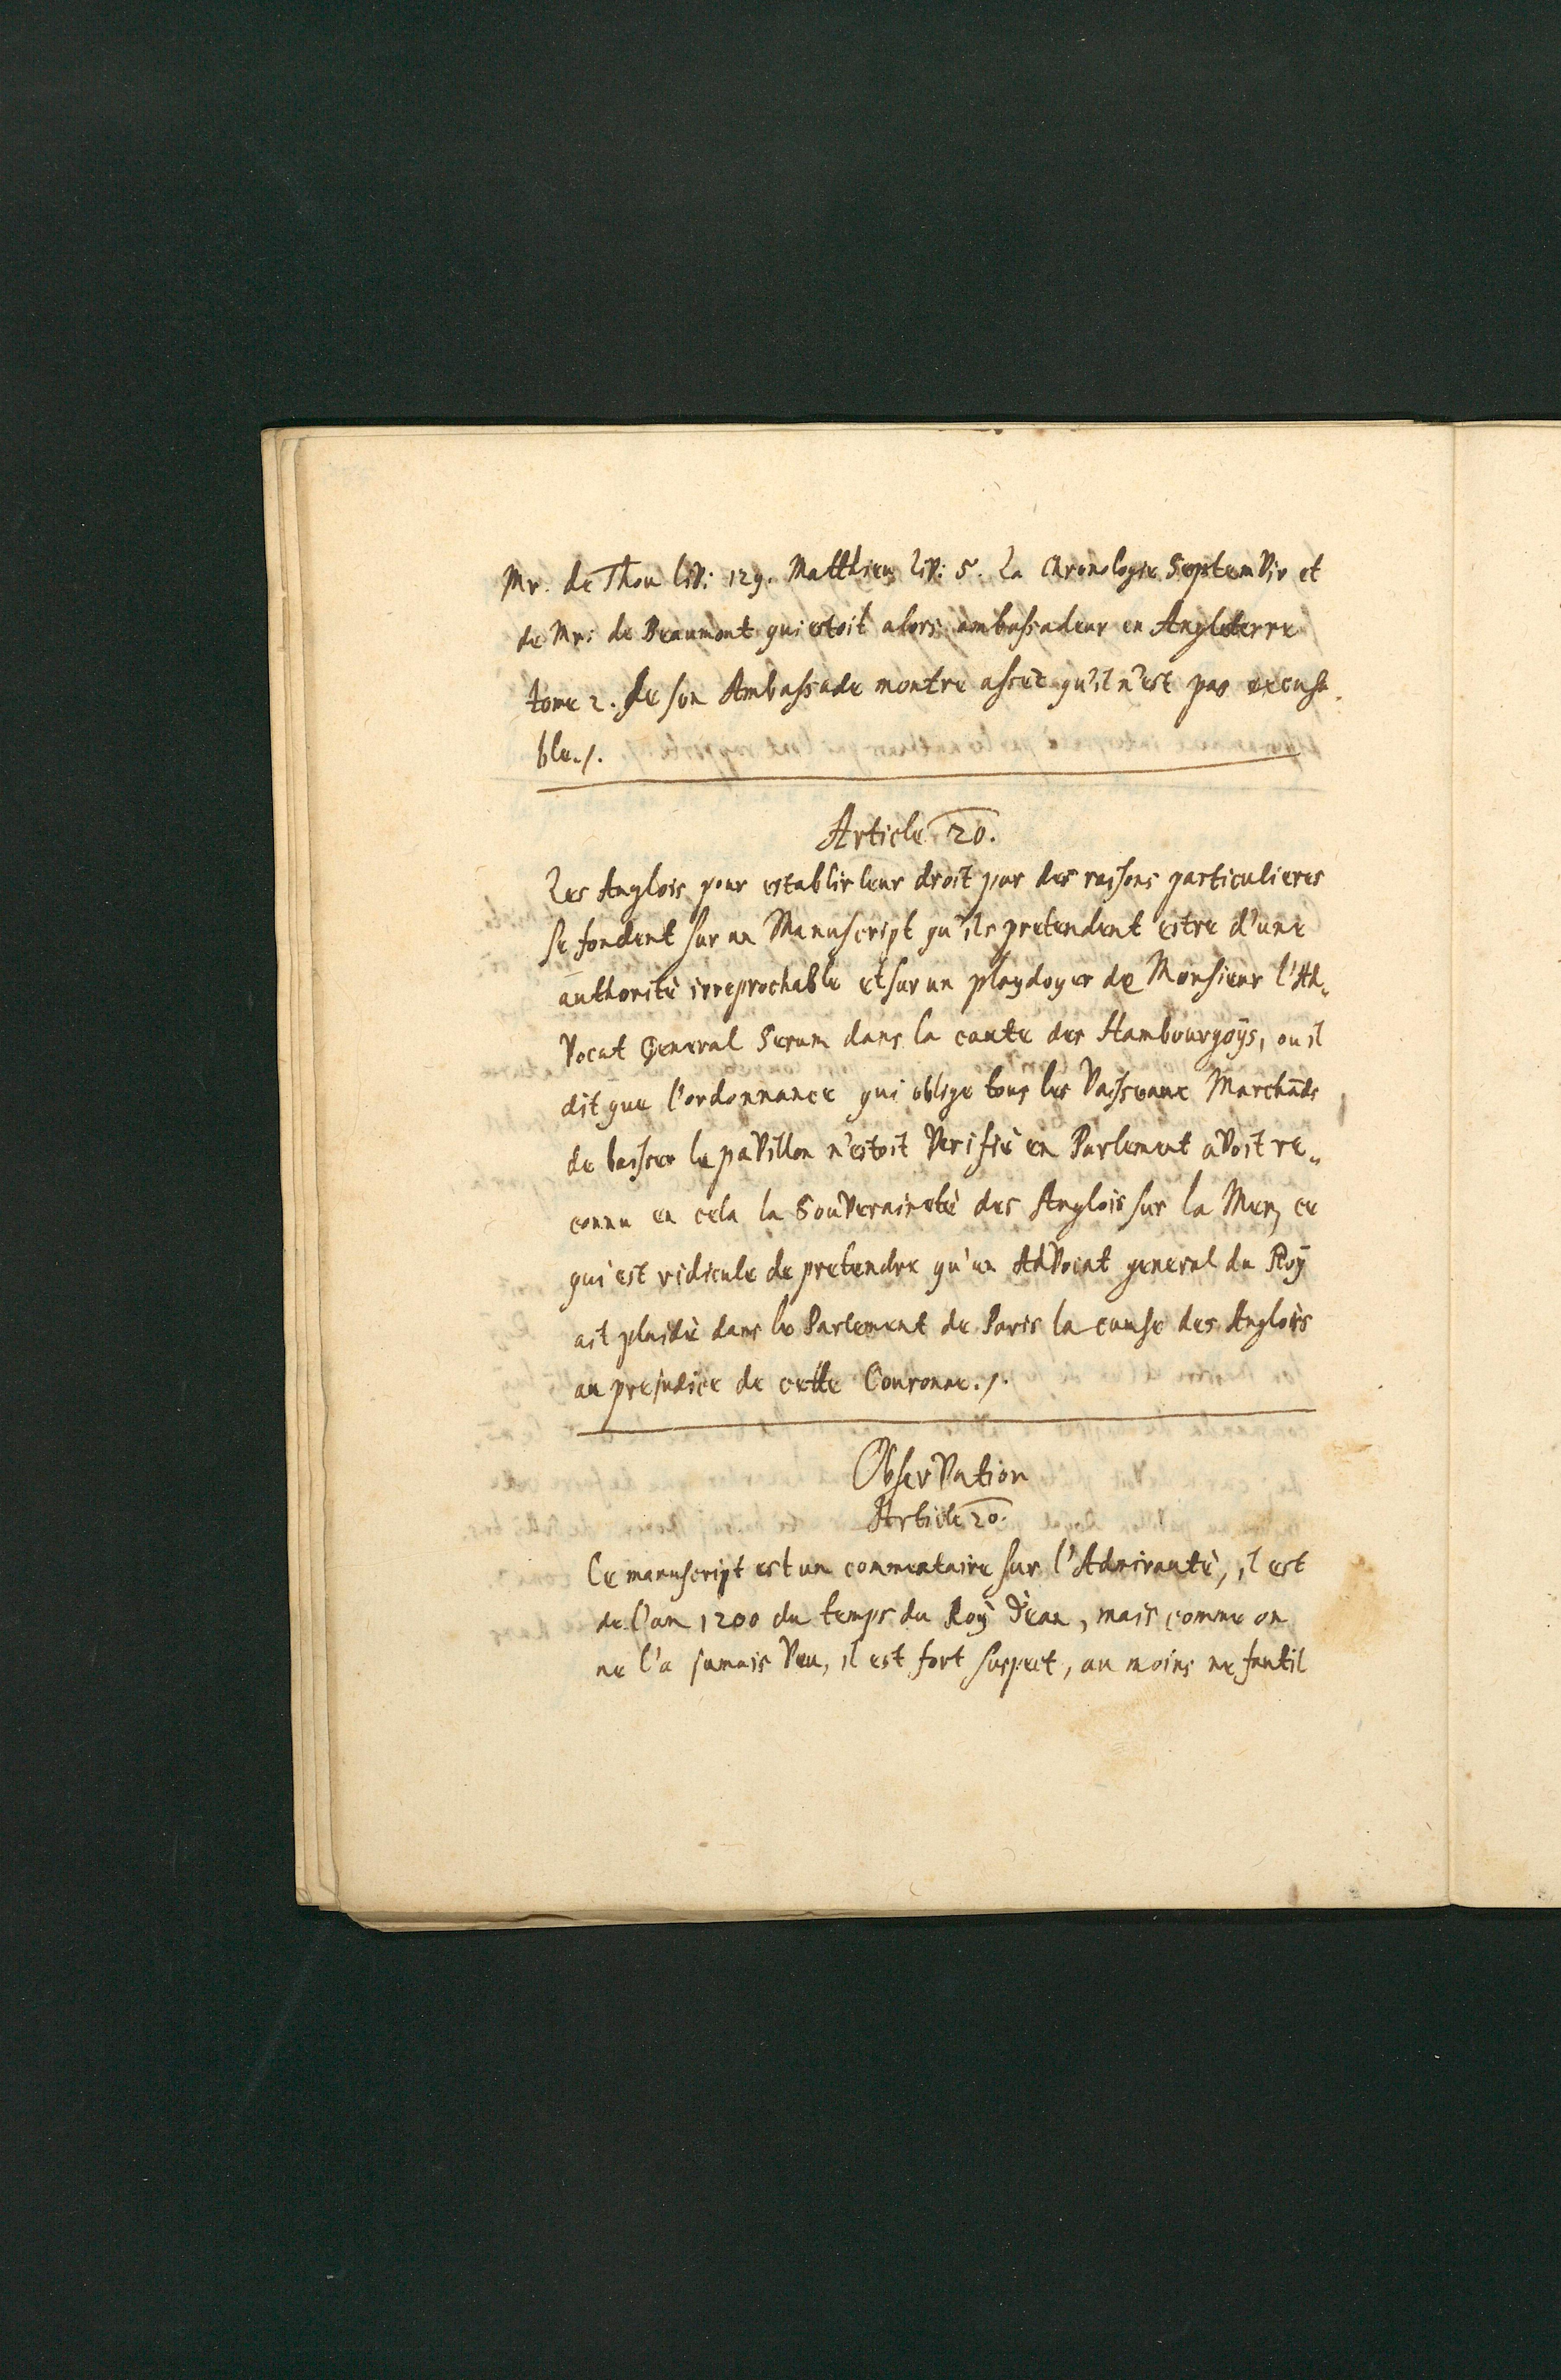 Mr. de Thou liv: 129. Matthieu liv: 5. La Chronologie Septemvir et
de Mr: de Beaumont qui estoit alors ambassadeur en Angleterre
tome 2. de son Ambassade montre assez qu'il n'est pas excusa
ble./.
Article 20.
Les Anglois pour establir leur droit par des raisons particulieres
se fondent sur un Manuscript qu'ils pretendent estre d'une
authorité irreprochable et sur un playdoyer de Monsieur l'Ad„
vocat General Serum dans la caute des Hambourgoÿs, ou il
dit que l'ordonnance qui oblige tous les Vaisseaux Marchāds
de baisser le pavillon n'estoit Verifié en Parlement avoit re„
connu en cela la Souveraineté des Anglois sur la Mer, ce
qui est ridicule de pretendre qu'un Advocat general du Roÿ
ait plaidé dans le Parlement de Paris la cause des Anglois
au prejudice de cette Couronne./.
Observation
Article 20.
Ce manuscript est un commentaire sur l'Admirauté, il est
de l'an 1200 du temps du Roÿ Jean, mais comme on
ne l'a jamais Veu, il est fort suspect, au moins ne fautil